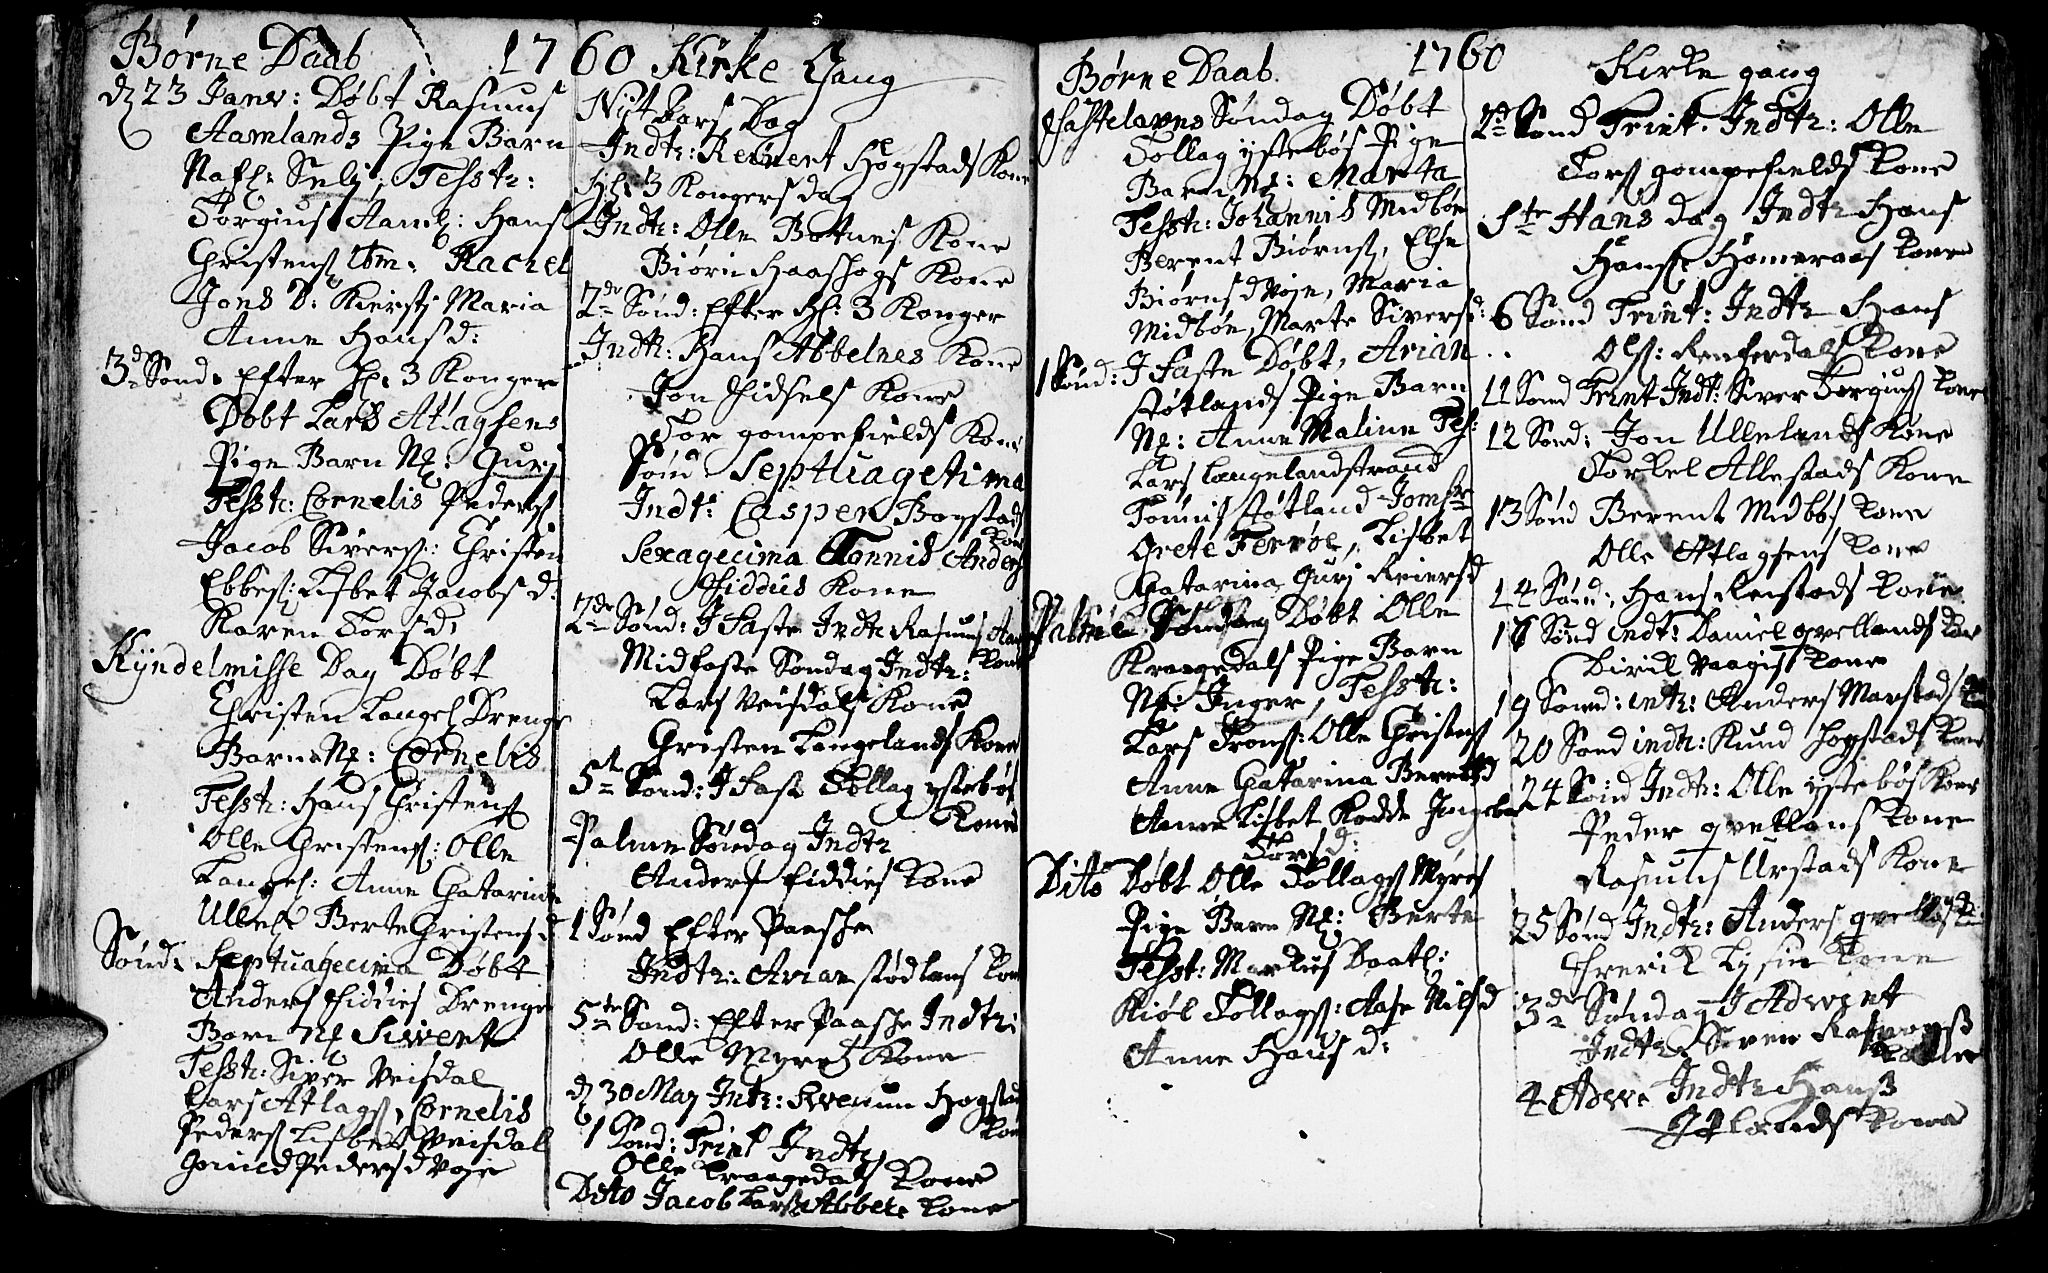 Børne Daab 1760 Kirke Gang
d 23 Janv: Døbt Rasmus
Aamlands Pige Barn
Nafl: Selj, Testr:
Torgius Aaml: Hans
Christens Ibm: Rachel
Jons D: Kiersti Maria
Anne Hans d:
3d Sønd: Efter H: 3 Konger
Døbt Lars Atlagsens
Pige Barn N: Gurj
Testr: Cornelis Peders
Jacob Sivers: Christen
Ebbes: Lisbet Jacobs d:
Karen Tors d:
Kÿndelmisse Dag Døbt
Christen Langel Drenge
Barn N: Cornelis
Testr: Hans Christens
Olle Christens: Olle
Langel: Anne Catarina
Ullels Berte Christens d
Sønd: Septuagecima Døbt
Anders Fiddies Drenge
Barn N Sivert
Testr: Siver Veisdal
Lars Atlags, Cornelis
Peders Lisbet Veisdal
Gonild Peders d Voje
Nÿt Aars Dag
Indtr: Reinert Høgstads Kone
H: 3 Kongers dag
Indtr: Olle Botnes Kone
Biørn Haashogs Kone
2de Sønd: Efter H: 3 Konger
Indtr: Hans Abbelnes Kone
Jon Fidsels Kone
Tor gompefields Kone
Sønd Septuagetima
Indt: Casper Bogstads
Kone
Sexagecima Tønnis Anders
Fiddus Kone
2de Sønd: I Faste Indtr Rasmus Aaml
Kone
Midfaste Søndag Indtr:
Lars Veisdals Kone
Christen Langelands Kone
5t Sønd: I Fast Tollag ystebøs
Kone
Palme Søndag Indtr
Anders Fiddies Kone
1 Sønd Efter Paasche
Indtr: Arian stødlans Kone
5te Sønd: Efter Paasche Indtr:
Olle Myres Kone
d 30 May Intr: Hogstad
Kone
1 Sønd: Trint Indtr
Olle Kraagedals Kone
Dito Jacob Lars Abbel: Kone
Børne Daab. 1760 Kirke gang
Fastelavns Søndag Døbt
Tollag ystebøs Pige
Barn N: Marta
Testr: Johannis Midbøe
Berent Biørns, Else
Biørns d Voje, Maria
Midbøe, Marte Sivers d:
1 Sønd: I Faste Døbt, Arian
støtlands Pige Barn
N: Anne Maline Tes:
Lars Langelandstrand
Tønnis støtland Jomfr
Grete Ferroe, Lisbet
Catarina Gurj Reiers d
Palme Søndag Døbt Olle
Kraagedals Pige Barn
N: Inger, Testr:
Lars Trons: Olle Christens
Anne Catarina Berents d
Anne Lisbet Kodde Ingebor
Tors d:
Dito Døbt Olle Tollags Myres
Pige Barn N: Berte
Testr: Markus Baatl:
Kiøl Tollags: Aase Nils d
Anne Hans d:
2de Sønd Trint. Indtr: Olle
Tors gompefields Kone
Ste Hans dag Indtr Hans
Hans Homeraas Kone
6 Sønd Trint: Indtr Hans
Ols: Renferdals Kone
11 Sønd Trint Indt: Siver Torgius Kone
12 Sønd: Jon Ullelands Kone
Torkel Allestads Kone
13 Sønd Berent Midbøs Kone
Olle Atlagsens Kone
14 Sønd: Hans Renstads Kone
16 Sønd Indt: Daniel qvellands Kone
Dirik Vaagis Kone
19 Sønd: intr: Anders Marstads
20 Sønd indtr: Knud Hogstads Kone
24 Sønd Indtr: Olle ystebøs Kone
Peder qvellans Kone
Rasmus Urstads Kone
25 Sønd Indtr: Anders
Frerik Kone
3de Søndag I Advent
Indtr Siver
4 Adve Indtr Hans
Kone